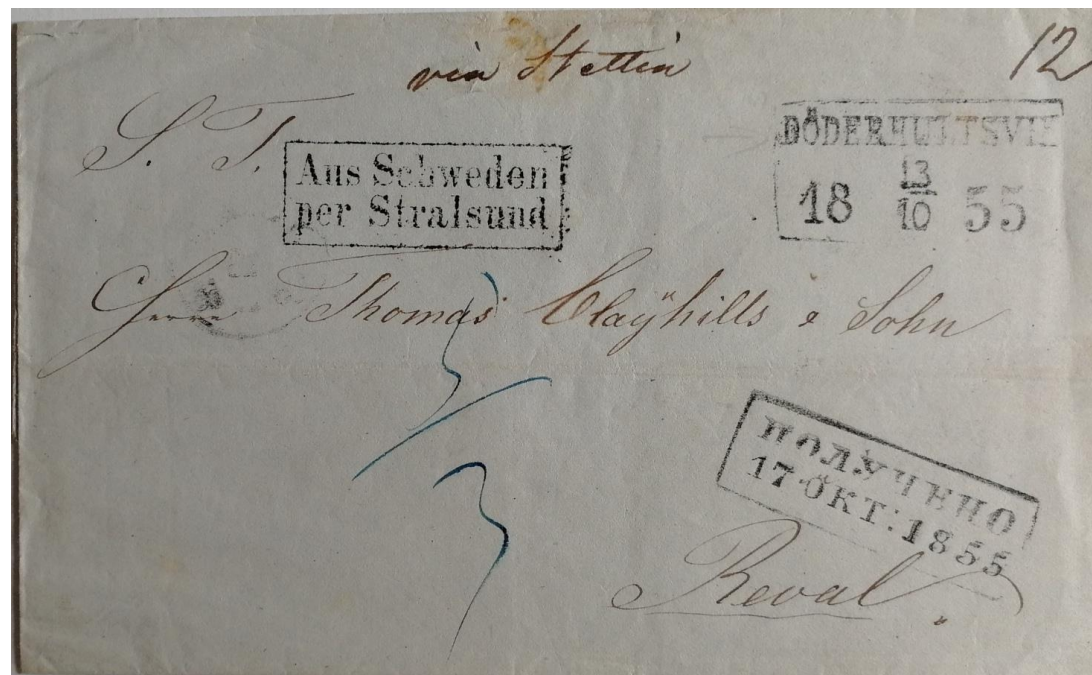 via Stettin
12
S. T.
Aus Schweden
per Stralsund
DÖDERHULTSVIK
18 13/10 55
Herrn Thomas Clayhills & Sohn
3/3
ПОЛУЧЕНО
17·ОКТ:1855
Reval